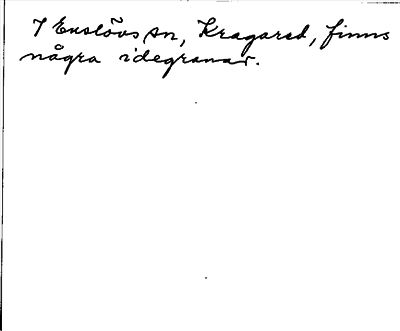 I Enslövs sn, Kragared, finns
några idegranar.